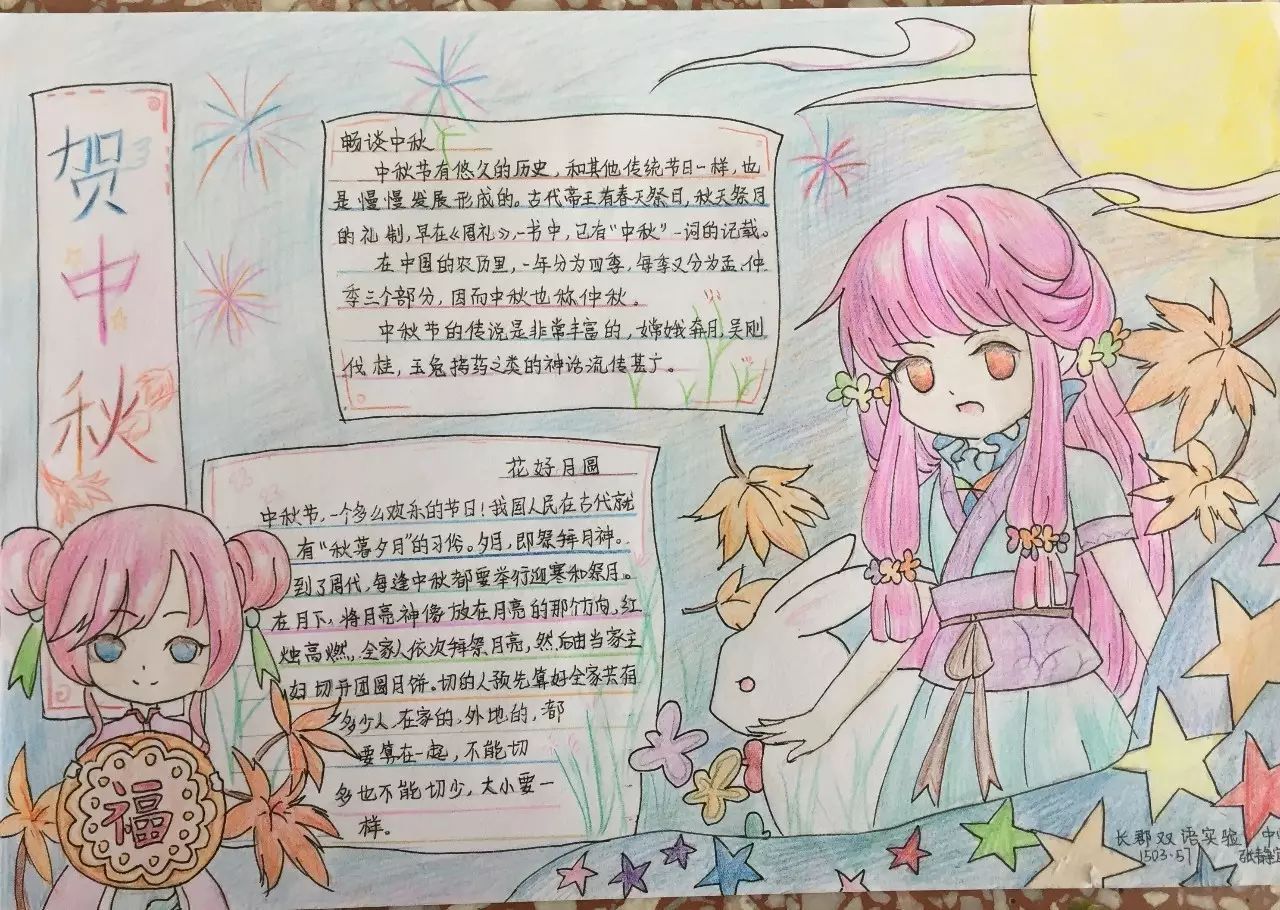 贺中秋
畅谈中秋
中秋节有悠久的历史,和其他传统节日一样,也
是慢慢发展形成的。古代帝王有春天祭日,秋天祭月
的礼制,早在《周礼》一书中,已有“中秋”一词的记载。
在中国的农历里,一年分为四季,每季又分为孟、仲
季三个部分,因而中秋也称仲秋。
中秋节的传说是非常丰富的,嫦娥奔月,吴刚
伐桂,玉兔捣药之类的神话流传甚广。
花好月圆
中秋节,一个多么欢乐的节日!我国人民在古代就
有“秋暮夕月”的习俗。夕月,即祭拜月神。
到了周代,每逢中秋都要举行迎寒和祭月。
在月下,将月亮神像放在月亮的那个方向,红
烛高燃,全家人依次拜祭月亮,然后由当家主
妇切开团圆月饼。切的人预先算好全家共有
多少人,在家的,外地的,都
要算在一起,不能切
多也不能切少,大小要一
样。
福
长郡双语实验中
1503.57 张静